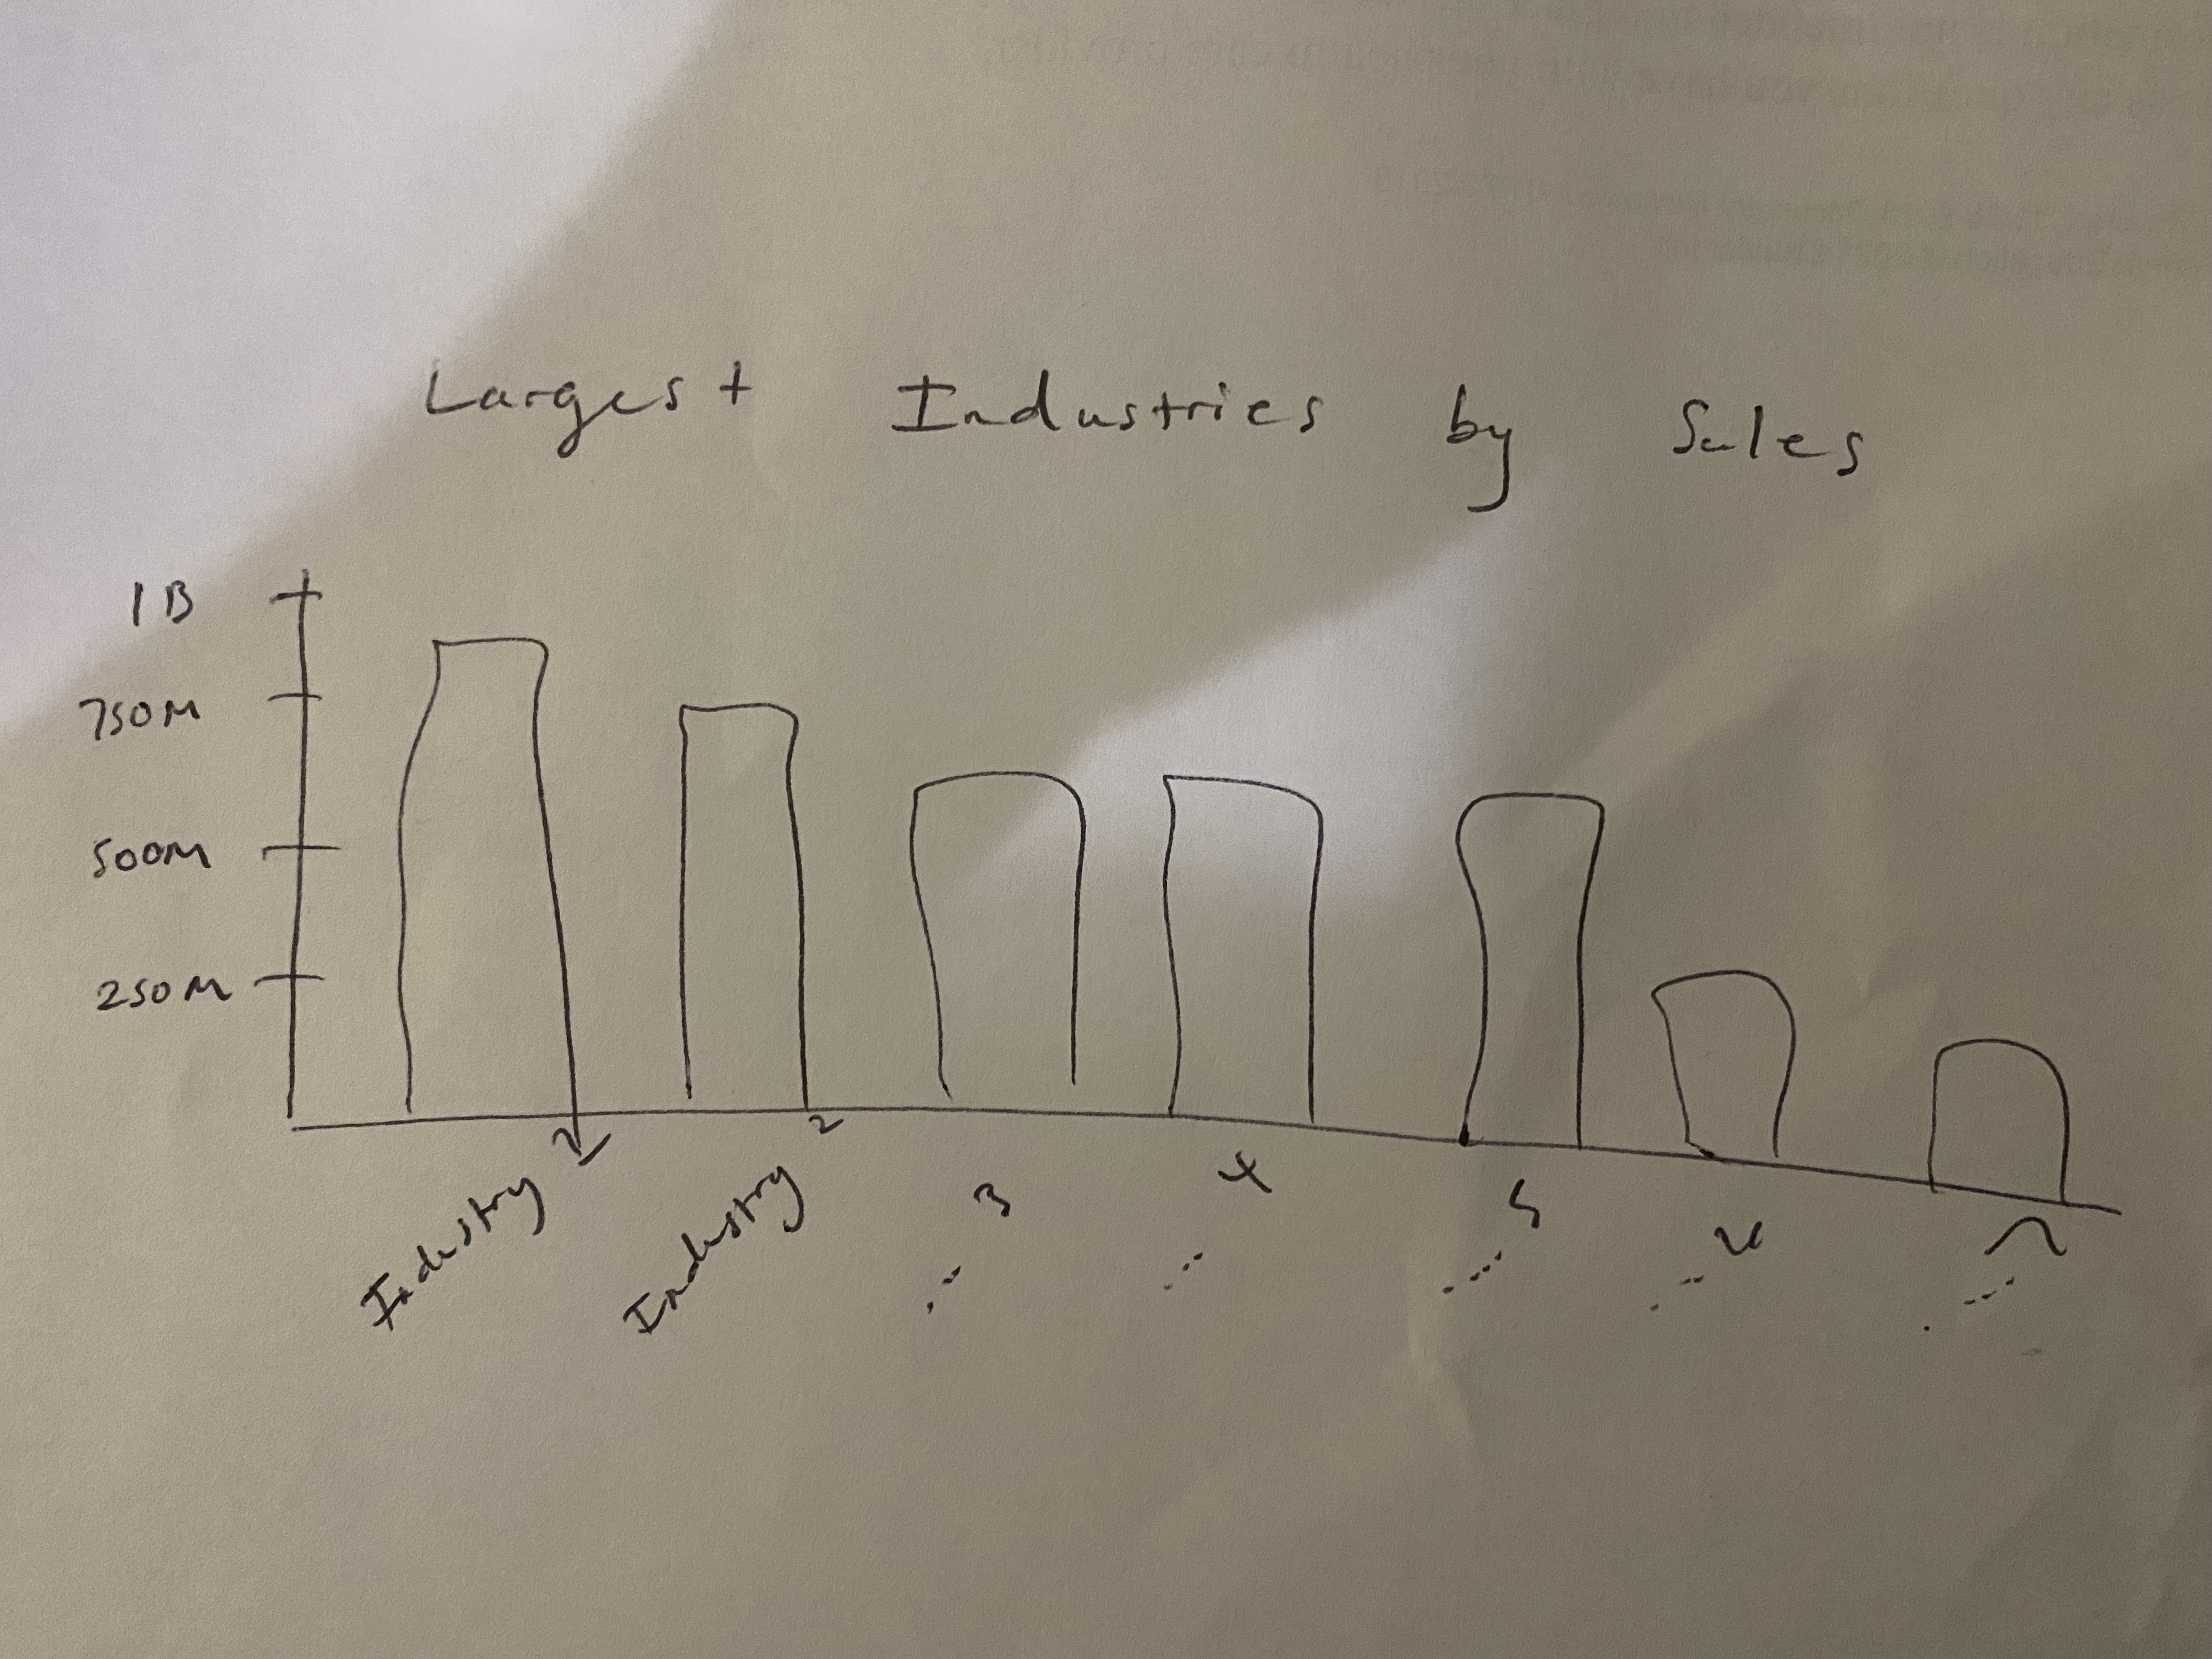 Largest Industries by Sales
1B
750M
500M
250M
Industry 1
Industry 2
3
4
5